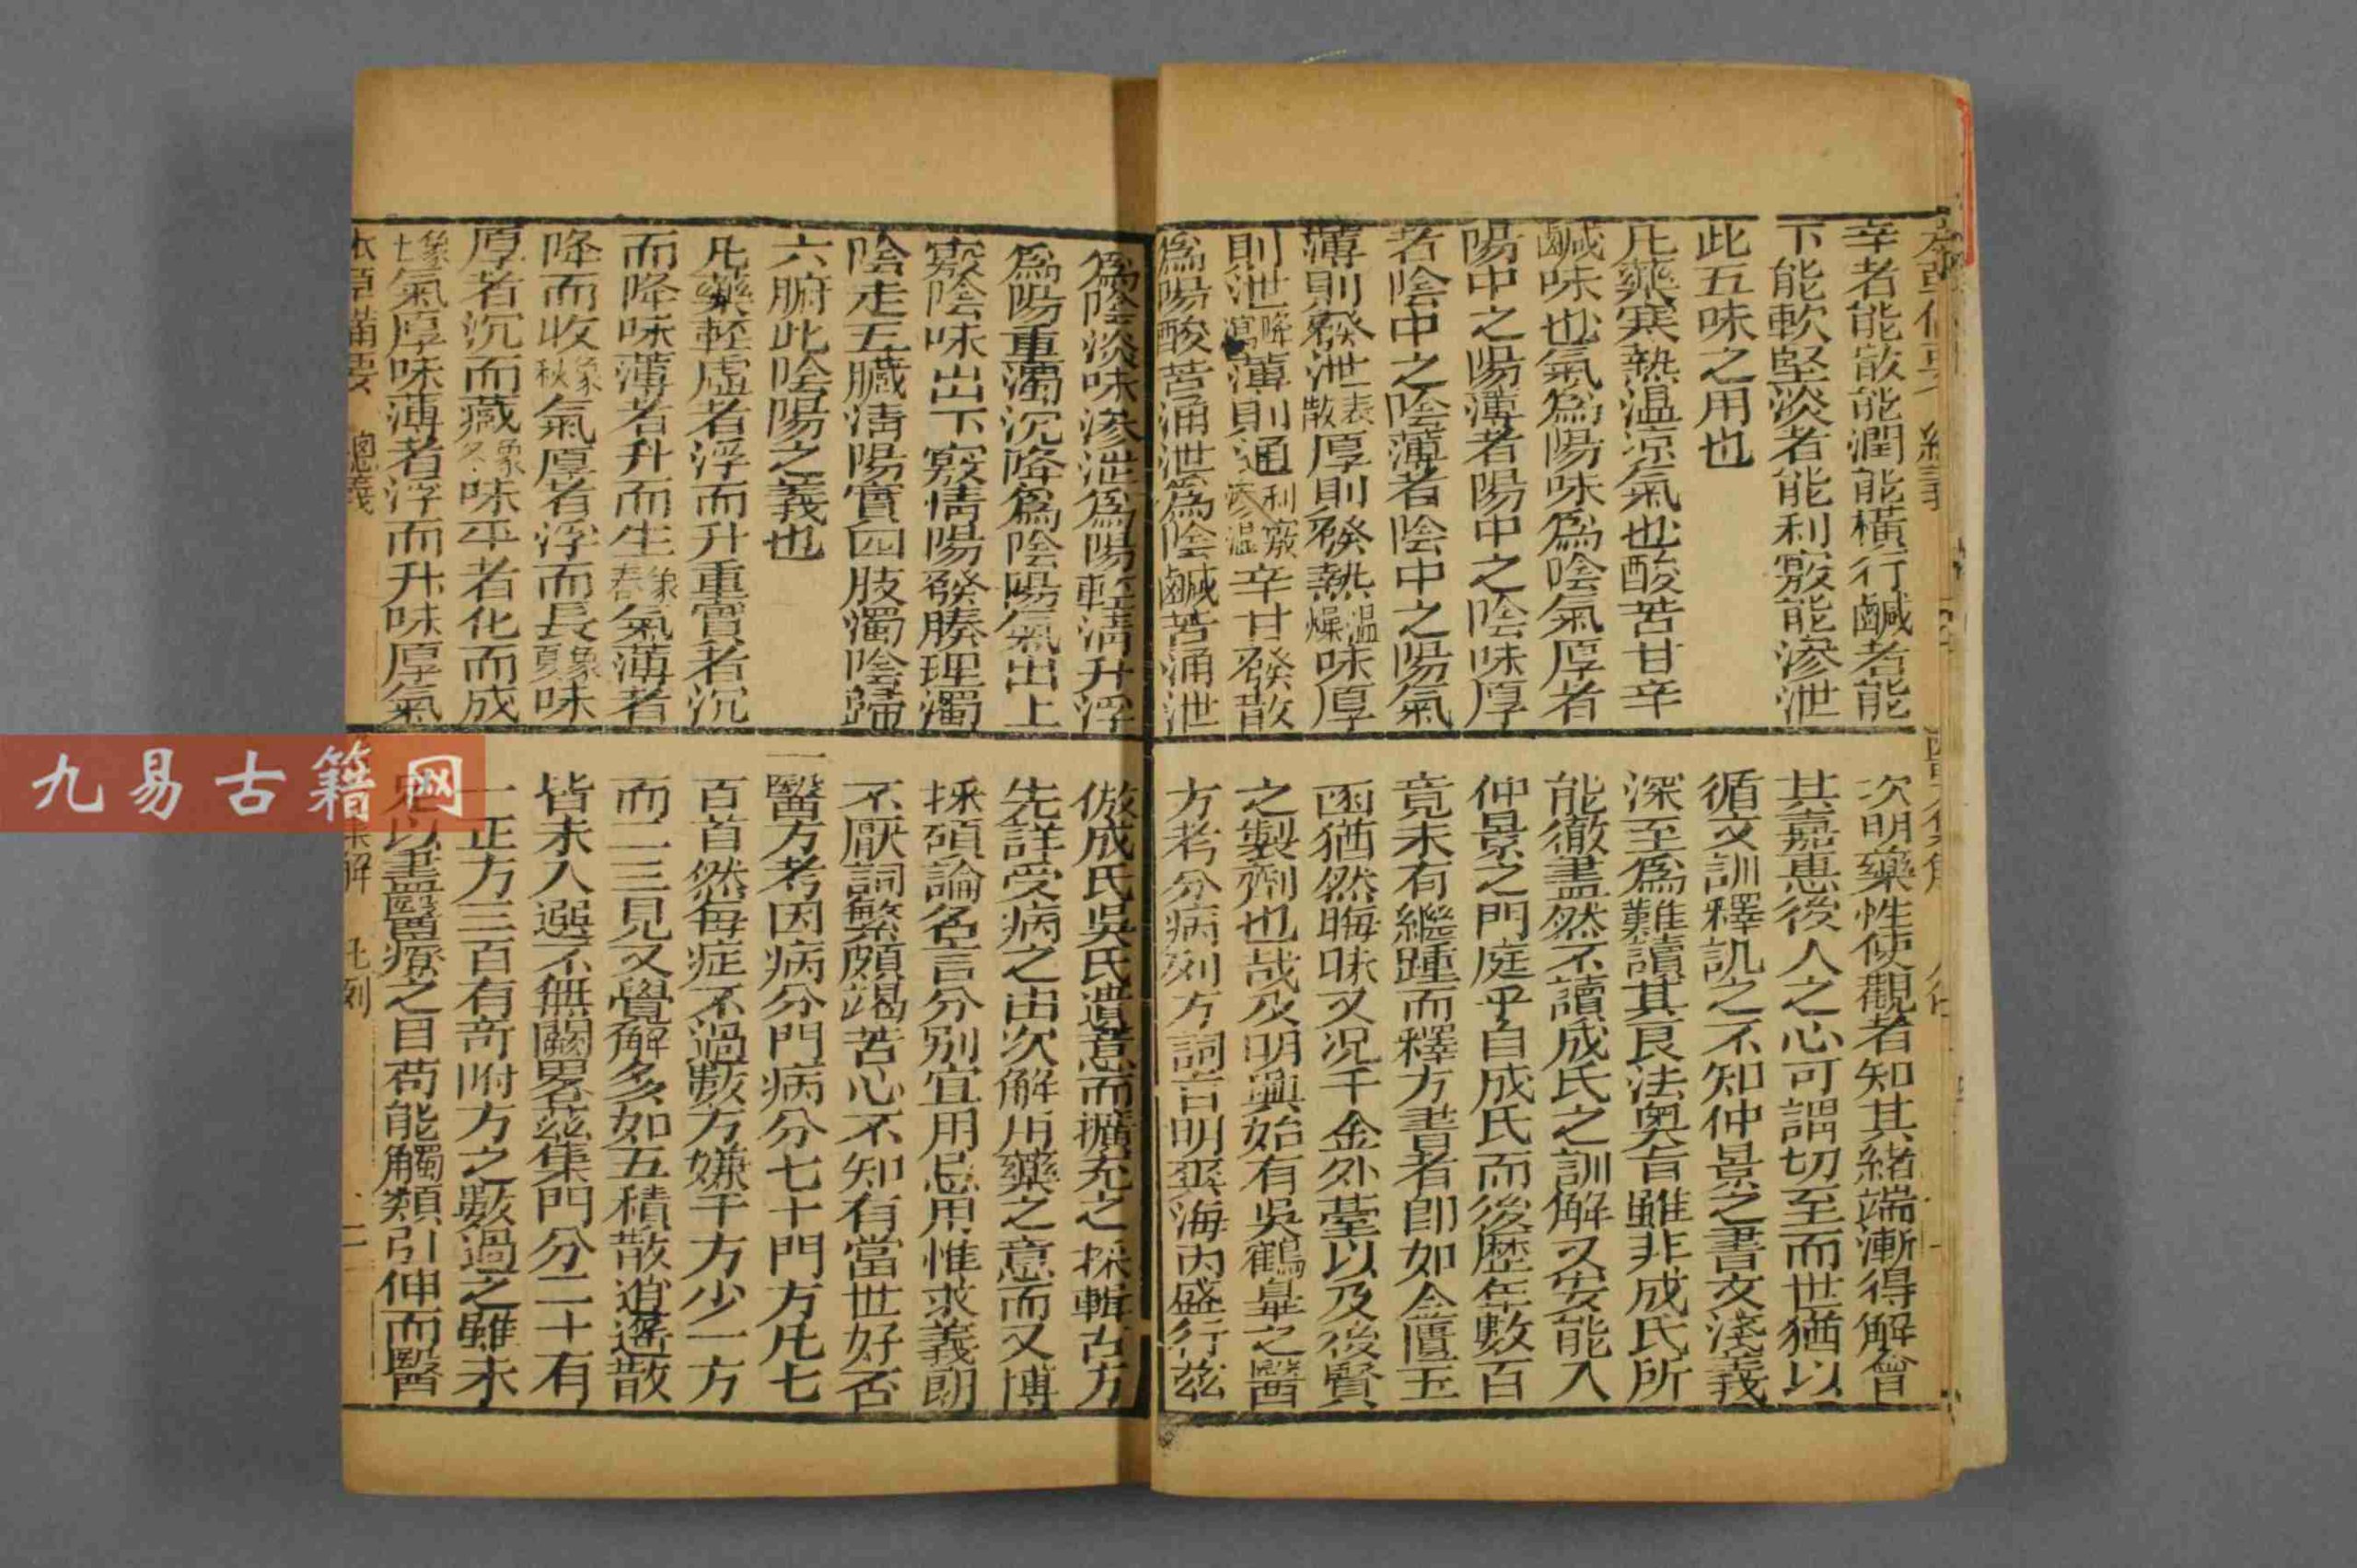 辛者能散能潤能橫行鹹者能
下能軟堅淡者能利竅能滲泄
此五味之用也
凡藥寒熱温涼氣也酸苦甘辛
鹹味也氣為陽味為陰氣厚者
陽中之陽薄者陽中之陰味厚
者陰中之陰薄者陰中之陽氣
薄則發泄表散厚則發熱温燥味厚
則泄降瀉薄則通利竅滲温辛甘發散
為陽酸苦涌泄為陰鹹苦涌泄
為陰淡味滲泄為陽輕清升浮
為陽重濁沉降為陰陽氣出上
竅陰味出下竅清陽發腠理濁
陰走五臟清陽實四肢濁陰歸
六腑此陰陽之義也
凡藥輕虛者浮而升重實者沉
而降味薄者升而生象春氣薄者
降而收象秋氣厚者浮而長象夏味
厚者沉而藏象冬味平者化而成
象土氣厚味薄者浮而升味厚氣
本草備要 總義
次明藥性使觀者知其緒端漸得解會
其嘉惠後人之心可謂切至而世猶以
循文訓釋譏之不知仲景之書文淺義
深至為難讀其良法奧旨雖非成氏所
能徹盡然不讀成氏之訓解又安能入
仲景之門庭乎自成氏而後歷年數百
竟未有繼踵而釋方書者即如金匱玉
函猶然晦昧又況千金外臺以及後賢
之製劑也哉及明興始有吳鶴皐之醫
方考分病列方詞旨明爽海內盛行茲
倣成氏吳氏遺意而擴充之採輯古方
先詳受病之由次解用藥之意而又博
採碩論名言分別宜用忌用惟求義朗
不厭詞繁頗竭苦心不知有當世好否
一醫方考因病分門病分七十門方凡七
百首然每症不過數方嫌千方少一方
而二三見又覺解多如五積散逍遙散
皆未入選不無闕畧茲集門分二十有
一正方三百有奇附方之數過之雖未
足以盡醫療之目苟能觸類引伸而醫
集解 凡例 二
九易古籍网